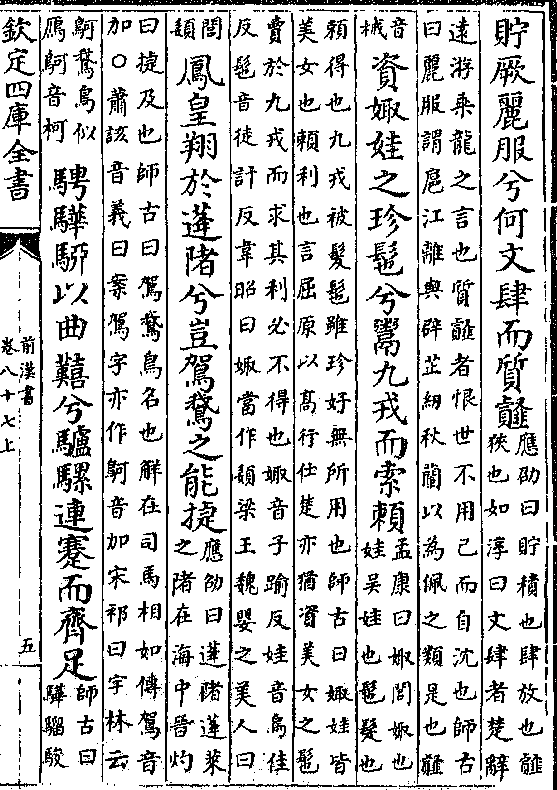 貯厥麗服兮何文肆而質䪥
應劭曰貯積也肆放也䪥
狹也如淳曰文肆者楚辭
遠游乗龍之言也質䪥者恨世不用己而自沈也師古
曰麗服謂扈江離與辟芷紉秋蘭以為佩之類是也䪥
音
械
資娵娃之珍髢兮鬻九戎而索頼
孟康曰娵閭娵也
娃吳娃也髢髲也
頼得也九戎被髮髢雖珍好無所用也師古曰娵娃皆
美女也頼利也言屈原以髙行仕楚亦猶資美女之髢
賣於九戎而求其利必不得也娵音子踰反娃音烏佳
反髢音徒計反韋昭曰娵當作䫫梁王魏嬰之美人曰
閭
䫫
鳳皇翔於蓬陼兮豈鴐鵞之能捷
應劭曰蓬陼蓬萊
之陼在海中晉灼
曰捷及也師古曰鴐鵞鳥名也解在司馬相如傳鴐音
加○蕭該音義曰案鴐字亦作鴚音加宋祁曰字林云
鴚鵞鳥似
鴈鴚音柯
騁驊駵以曲囏兮驢騾連蹇而齊足
師古曰
驊騮駿
欽定四庫全書
前漢書
卷八十七上
五